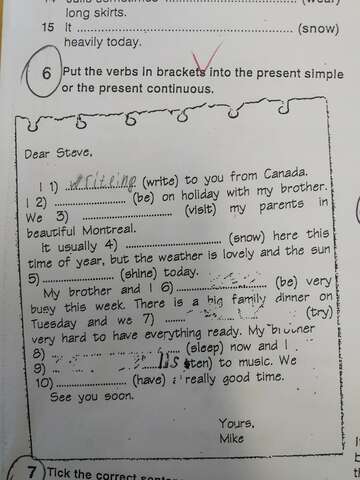 14 Julie sometimes ........................... (wear)
long skirts.
15 It ........................................ (snow)
heavily today.
6 Put the verbs in brackets into the present simple
or the present continuous.
Dear Steve,
I 1) writeing (write) to you from Canada.
I 2) ........................ (be) on holiday with my brother.
We 3) ........................ (visit) my parents in
beautiful Montreal.
It usually 4) ........................ (snow) here this
time of year, but the weather is lovely and the sun
5) ........................ (shine) today.
My brother and I 6) ........................ (be) very
busy this week. There is a big family dinner on
Tuesday and we 7) ........................ (try)
very hard to have everything ready. My brother
8) ........................ (sleep) now and I
9) ........................ (listen) to music. We
10) ........................ (have) a really good time.
See you soon.
Yours,
Mike
7 Tick the correct